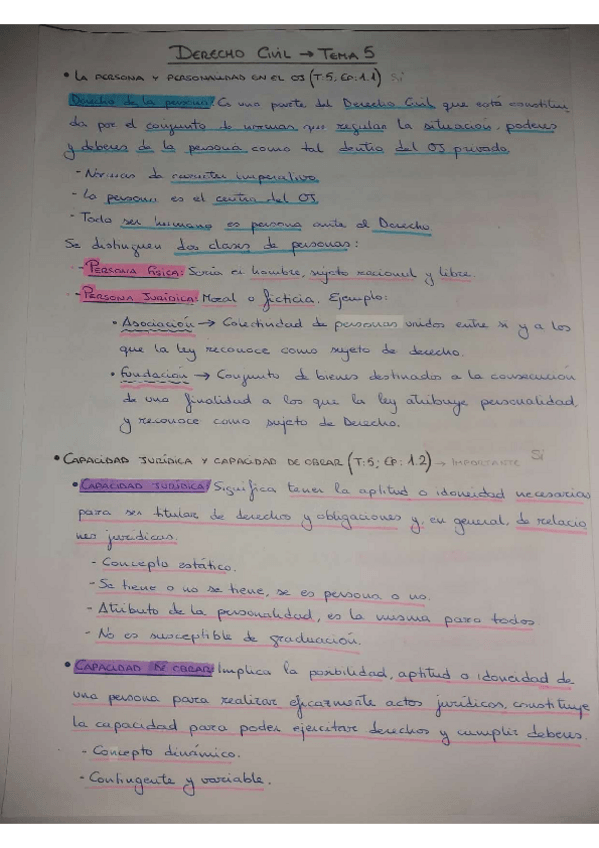 DERECHO CIVIL → TEMA 5
• LA PERSONA Y PERSONALIDAD EN EL OJ (T:5, CP: 1.1) Si
Derecho de la persona: Es una parte del Derecho Civil que está constitui
da por el conjunto de normas que regulan la situación, poderes
y deberes de la persona como tal dentro del OJ privado.
- Normas de carácter imperativo.
- La persona es el centro del OJ.
- Todo ser humano es persona ante el Derecho.
Se distinguen dos clases de personas:
- PERSONA FÍSICA: Sería el hombre, sujeto racional y libre.
- PERSONA JURÍDICA: Moral o ficticia. Ejemplo:
• Asociación → Colectividad de personas unidos entre sí y a los
que la ley reconoce como sujeto de derecho.
• Fundación → Conjunto de bienes destinados a la consecución
de una finalidad a los que la ley atribuye personalidad
y reconoce como sujeto de Derecho.
• CAPACIDAD JURÍDICA Y CAPACIDAD DE OBRAR (T:5; CP: 1.2) → IMPORTANTE Si
• CAPACIDAD JURÍDICA: Significa tener la aptitud o idoneidad necesarias
para ser titular de derechos y obligaciones y, en general, de relacio
nes jurídicas.
- Concepto estático.
- Se tiene o no se tiene, se es persona o no.
- Atributo de la personalidad, es la misma para todos.
- No es susceptible de graduación.
• CAPACIDAD DE OBRAR: Implica la posibilidad, aptitud o idoneidad de
una persona para realizar eficazmente actos jurídicos, constituye
la capacidad para poder ejercitar derechos y cumplir deberes.
- Concepto dinámico.
- Contingente y variable.